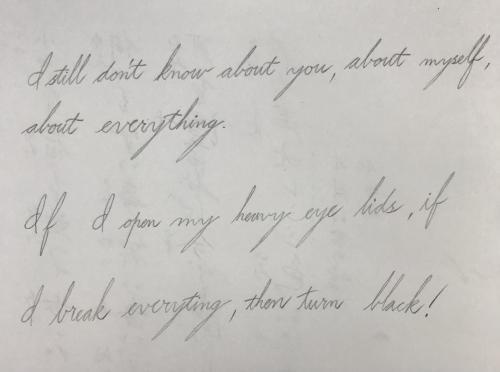 I still don't know about you, about myself,
about everything.
If I open my heavy eye lids, if
I break everyting, then turn black!